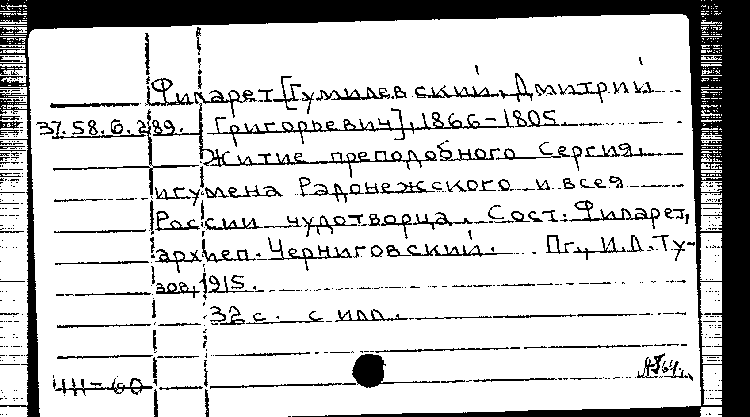 Филарет [Гумилевский, Дмитрий
37.58.6.289. Григорьевич], 1866-1805.
Житие преподобного Сергия,
игумена Радонежского и всея
России чудотворца. Сост. Филарет,
архиеп. Черниговский. Пг., И.Л. Ту-
зов, 1915.
32 с. с илл.
ЧН-60